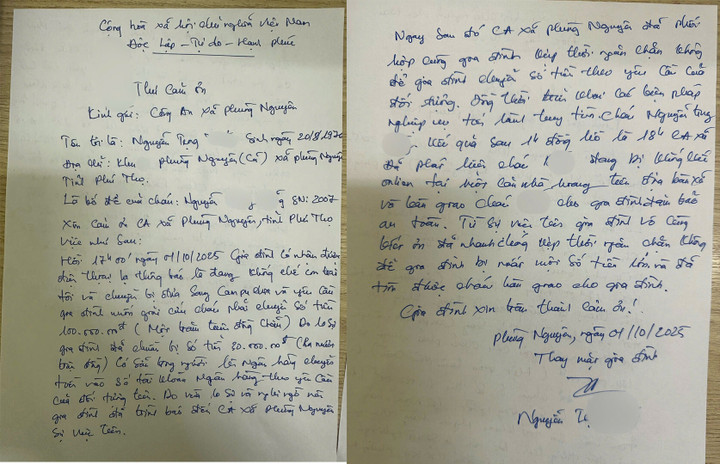 Cộng hòa xã hội chủ nghĩa Việt Nam
Độc Lập - Tự do - Hạnh phúc
Thư Cảm ơn
Kính gửi: Công An xã Phùng Nguyên
Tên tôi là: Nguyễn Sinh ngày 20/8/197
Địa chỉ: Khu Phùng Nguyên (Cũ) xã Phùng Nguyên
Tỉnh Phú Thọ.
Là bố đẻ của cháu: Nguyễn SN: 2007
Xin Cảm ơn CA xã Phùng Nguyên, tỉnh Phú Thọ
việc như sau:
Hồi 17h00' ngày 01/10/2025 Gia đình có nhận được
điện thoại là thông báo là đang khống chế con trai
tôi và chuyển bị đưa sang Campuchia và yêu cầu
gia đình muốn giải cứu cháu phải chuyển số tiền
100.000.000đ (Một trăm triệu đồng chẵn) Do lo sợ
gia đình đã chuẩn bị số tiền 30.000.000đ (ba mươi
triệu đồng) Có sai trong người lên Ngân hàng chuyển
tiền vào số tài khoản Ngân hàng theo yêu cầu
của đối tượng trên. Do vừa lo sợ và nghi ngờ nên
gia đình đã trình báo đến CA xã Phùng Nguyên
sự việc trên.
Ngay sau đó CA xã Phùng Nguyên đã phối
hợp cùng gia đình kịp thời ngăn chặn không
để gia đình chuyển số tiền theo yêu cầu của
đối tượng. Đồng thời triển khai các biện pháp
nghiệp vụ tiến hành truy tìm cháu Nguyễn
Kết quả sau 1h đồng hồ là 18h CA xã
Đã phát hiện cháu đang bị khống chế
online tại trên địa bàn xã
và bàn giao cháu cho gia đình đảm bảo
an toàn. Từ sự việc trên gia đình vô cùng
biết ơn đã nhanh chóng kịp thời ngăn chặn không
để gia đình bị mất một số tiền lớn và đã
tìm được cháu bàn giao cho gia đình.
Gia đình xin trân thành cảm ơn!
Phùng Nguyên, ngày 01/10/2025
Thay mặt gia đình
Nguyễn